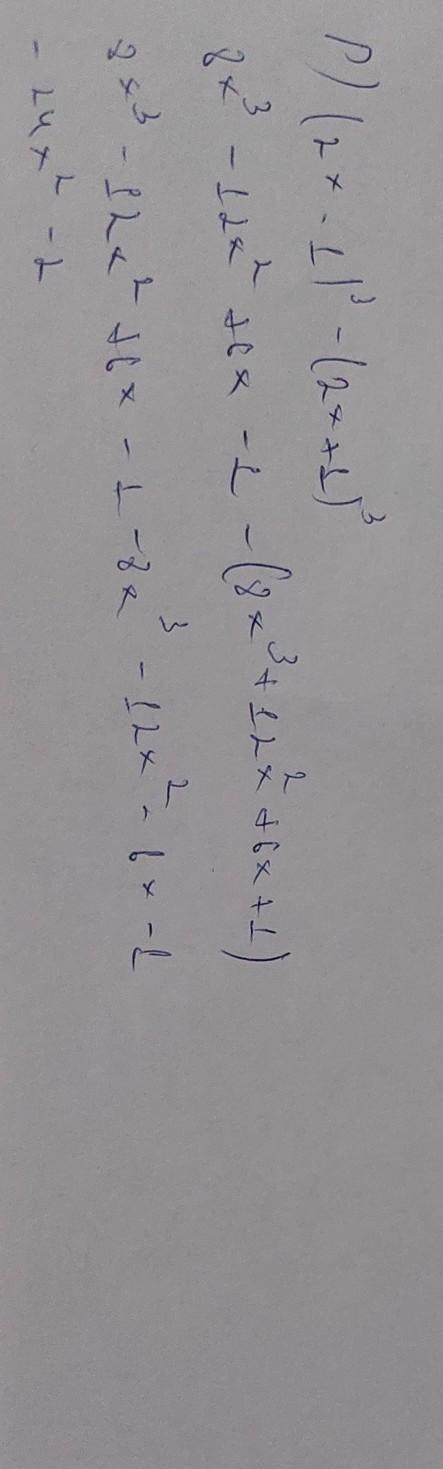 p) (2x - 1)³ - (2x+1)³
8x³ - 12x² + 6x - 1 - (8x³ + 12x² + 6x + 1)
8x³ - 12x² + 6x - 1 - 8x³ - 12x² - 6x - 1
- 24x² - 2